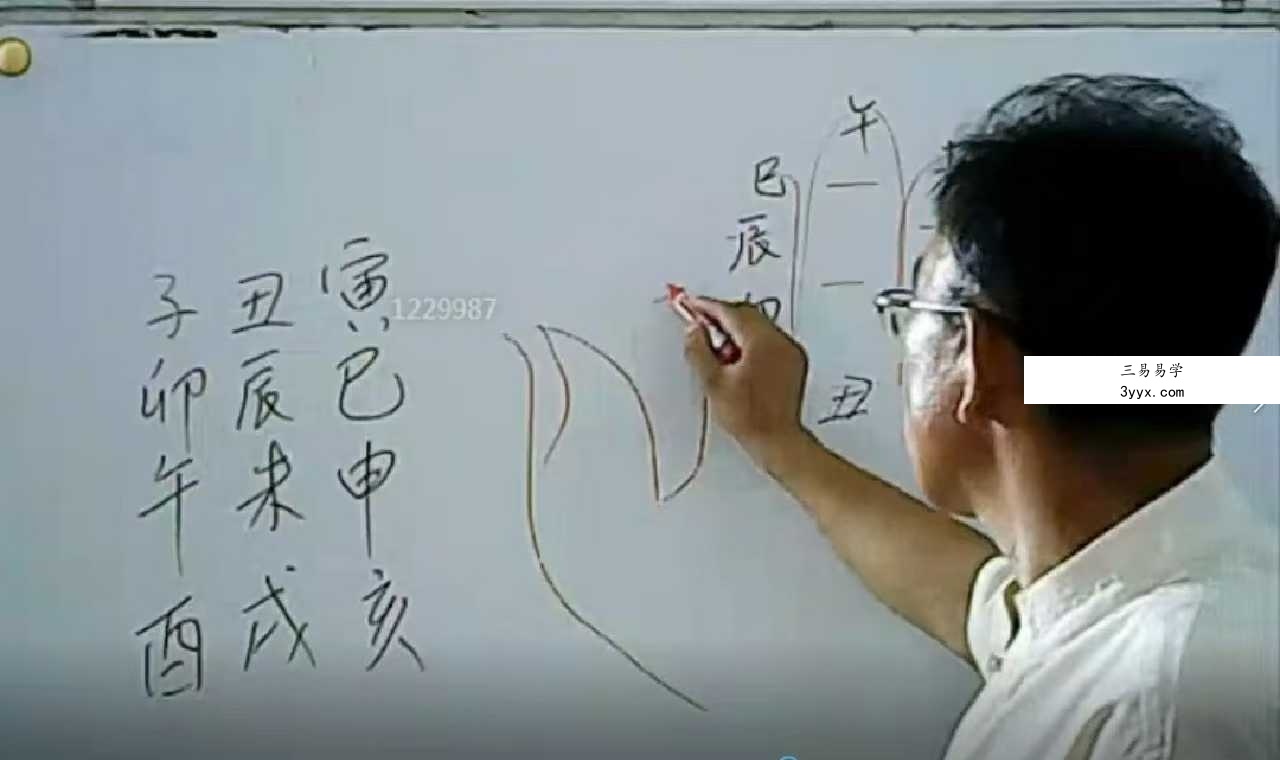 午
巳
辰
丑
子 丑 寅
1229987
卯 辰 巳
午 未 申
酉 戌 亥
三易易学
3yyx.com